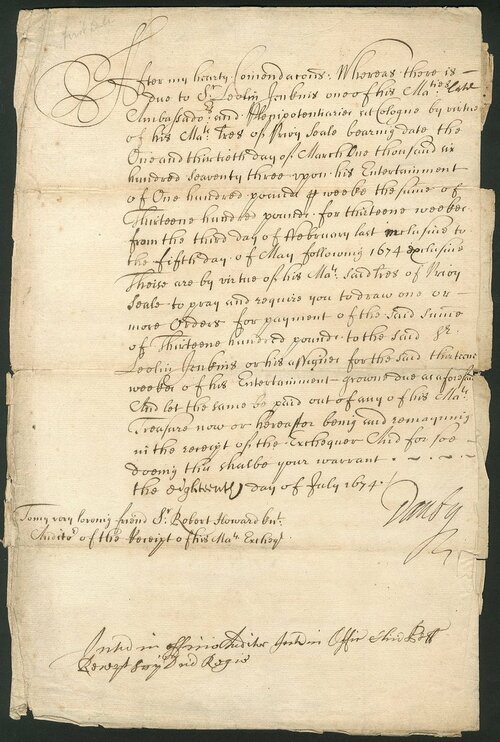 After my hearty Comendacons. Whereas there is
due to Sr Leolin Jenkins one of his Maties late
Ambassadors and Plenipotentiaries at Cologne by virtue
of his Mats Lres of Privy Seale bearing date the
One and thirtieth day of March One thousand six
hundred seaventy three upon his Entertainment
of One hundred pounds p weeke the same of
Thirteene hundred pounds for thirteene weekes
from the third day of February last inclusive to
the fifth day of May following 1674 exclusive
Theise are by virtue of his Mats said Lres of Privy
Seale to pray and require you to draw one or
more Orders for payment of the said sume
of Thirteene hundred pounds to the said Sr
Leolin Jenkins or his assignes for the said thirteene
weekes of his Entertainment growne due as aforesaid
And let the same be paid out of any of his Mats
Treasure now or hereafter being and remayning
in the receipt of the Exchequer And for soe
doeing this shalbe your warrant
the eighteenth day of July 1674
Danby
To my very loveing friend Sr Robert Howard knt
Auditor of the Receipt of his Mats Excheqr
Intd in officio Auditor Intd in Officio